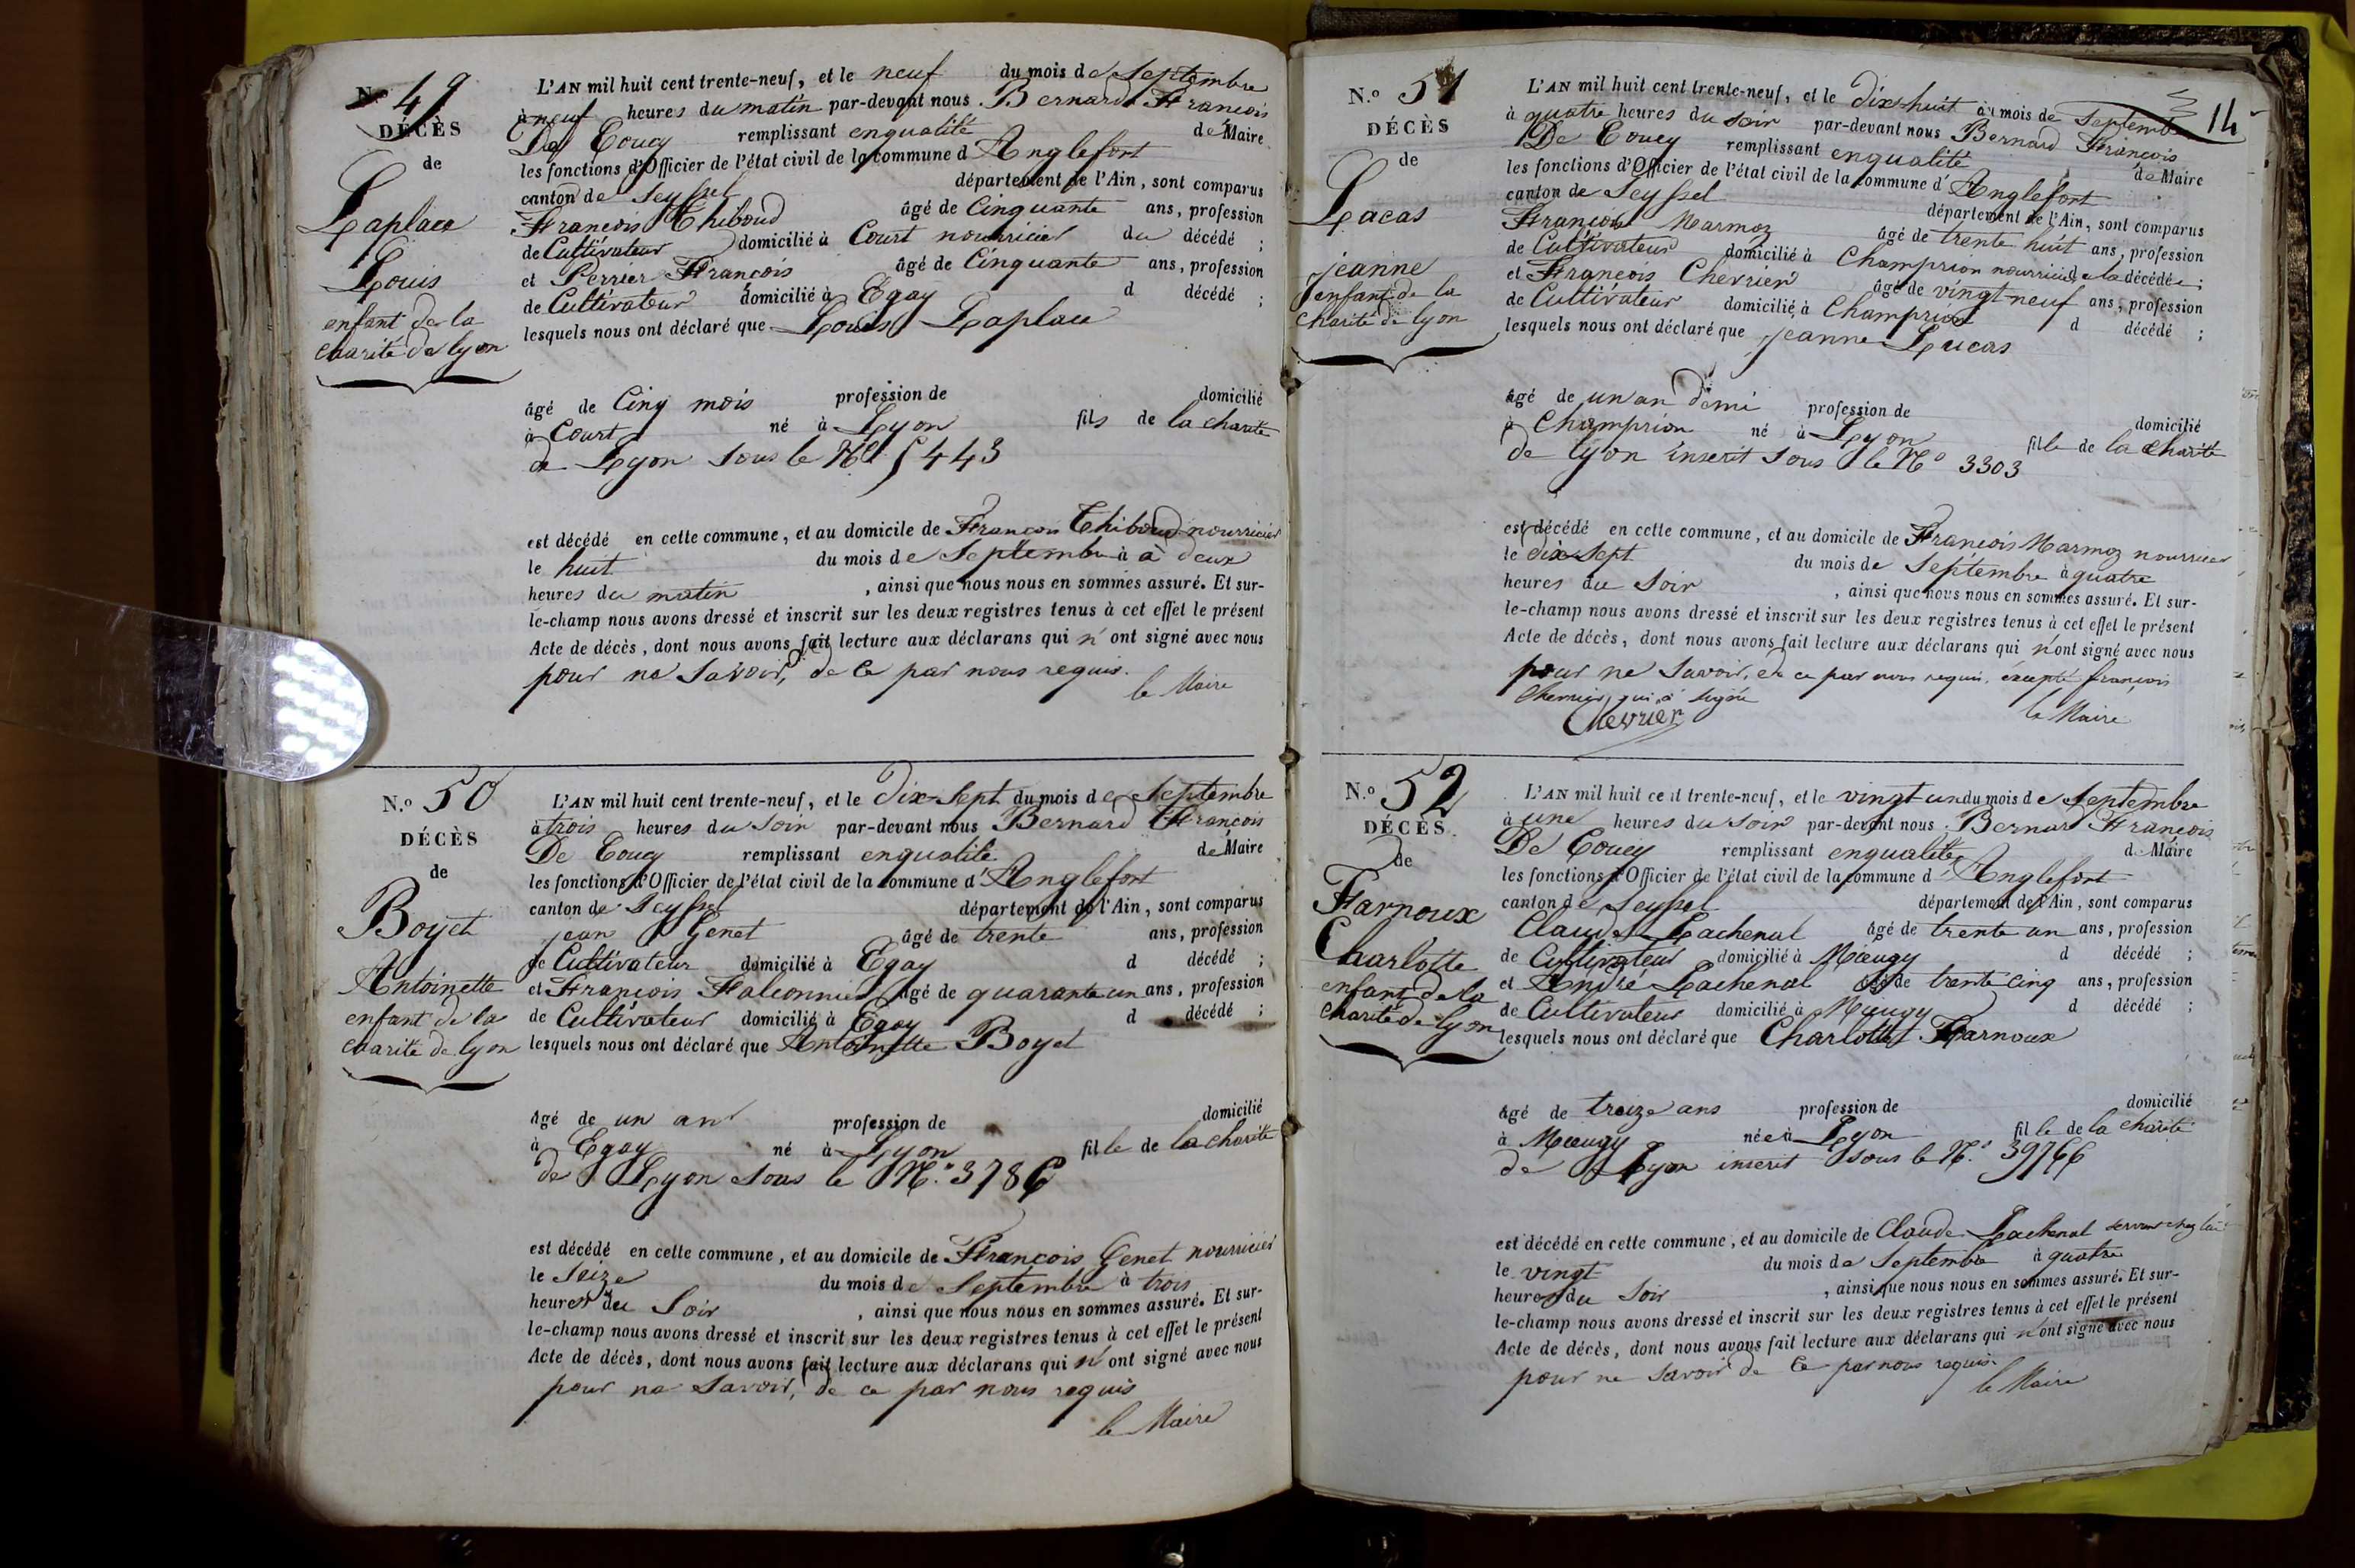 N.o 49
DÉCÈS
de
Laplace
Louis
enfant de la
charité de lyon
L'AN mil huit cent trente-neuf, et le neuf du mois de Septembre
à neuf heures du matin par-devant nous Bernard François
De Coucy remplissant enqualité de Maire
les fonctions d'Officier de l'état civil de la commune d Anglefort
canton de Seyssel département de l'Ain, sont comparus
François Thiboud âgé de Cinquante ans, profession
de Cultivateur domicilié à Court nourricier du décédé ;
et Perrier François âgé de Cinquante ans, profession
de Cultivateur domicilié à Egay d décédé ;
lesquels nous ont déclaré que Louis Laplace
âgé de Cinq mois profession de domicilié
à Court né à Lyon fils de la charité
de Lyon sous le No 5443
est décédé en cette commune, et au domicile de François Thiboud nourricier
le huit du mois de Septembre à à deux
heures du matin , ainsi que nous nous en sommes assuré. Et sur-
le-champ nous avons dressé et inscrit sur les deux registres tenus à cet effet le présent
Acte de décès, dont nous avons fait lecture aux déclarans qui n' ont signé avec nous
pour ne Savoir, de ce par nous requis.
le Maire
N.o 50
DÉCÈS
de
Boyet
Antoinette
enfant de la
charité de lyon
L'AN mil huit cent trente-neuf, et le Dix-Sept du mois de Septembre
à trois heures du Soir par-devant nous Bernard François
De Coucy remplissant enqualité de Maire
les fonctions d'Officier de l'état civil de la commune d'Anglefort
canton de Seyssel département de l'Ain, sont comparus
jean Genet âgé de trente ans, profession
de Cultivateur domicilié à Egay d décédé ;
et François Falconnier âgé de quarante un ans, profession
de Cultivateur domicilié à Egay d décédé ;
lesquels nous ont déclaré que Antoinette Boyet
âgé de un an profession de domicilié
à Egay né à Lyon fille de la charité
de Lyon sous le No. 3786
est décédé en cette commune, et au domicile de François Genet nourricier
le Seize du mois de Septembre à trois
heures du Soir , ainsi que nous nous en sommes assuré. Et sur-
le-champ nous avons dressé et inscrit sur les deux registres tenus à cet effet le présent
Acte de décès, dont nous avons fait lecture aux déclarans qui n' ont signé avec nous
pour ne Savoir, de ce par nous requis
le Maire
14
N.o 51
DÉCÈS
de
Lacas
jeanne
enfant de la
charité de lyon
L'AN mil huit cent trente-neuf, et le dix-huit du mois de Septembre
à quatre heures du soir par-devant nous Bernard François
De Coucy remplissant enqualité de Maire
les fonctions d'Officier de l'état civil de la commune d'Anglefort
canton de Seyssel département de l'Ain, sont comparus
François Marmoz âgé de trente huit ans, profession
de Cultivateur domicilié à Champrion nourricier de la décédée ;
et François Chevrier âgé de vingt neuf ans, profession
de Cultivateur domicilié à Champrion d décédé ;
lesquels nous ont déclaré que jeanne Lucas
âgé de un an demi profession de domicilié
à Champrion né à Lyon fille de la charité
de lyon inscrit sous le No 3303
est décédé en cette commune, et au domicile de François Marmoz nourricier
le dix-Sept du mois de Septembre à quatre
heures du Soir , ainsi que nous nous en sommes assuré. Et sur-
le-champ nous avons dressé et inscrit sur les deux registres tenus à cet effet le présent
Acte de décès, dont nous avons fait lecture aux déclarans qui n'ont signé avec nous
pour ne Savoir, de ce par nous requis, excepté françois
Chevrier, qui a signé
Chevrier
le Maire
N.o 52
DÉCÈS
de
Farnoux
Charlotte
enfant de la
charité de lyon
L'AN mil huit cent trente-neuf, et le vingt un du mois de Septembre
à une heures du soir par-devant nous Bernard François
De Coucy remplissant enqualité de Maire
les fonctions d'Officier de l'état civil de la commune d'Anglefort
canton de Seyssel département de l'Ain, sont comparus
Claude Lachenal âgé de trente un ans, profession
de Cultivateur domicilié à Mœugy d décédé ;
et André Lachenal âgé de trente cinq ans, profession
de Cultivateur domicilié à Mœugy d décédé ;
lesquels nous ont déclaré que Charlotte Farnoux
âgé de treize ans profession de domicilié
à Mœugy née à Lyon fille de la charité
de Lyon inscrit sous le No. 39766
est décédé en cette commune, et au domicile de Claude Lachenal servant chez lui
le vingt du mois de Septembre à quatre
heures du Soir , ainsi que nous nous en sommes assuré. Et sur-
le-champ nous avons dressé et inscrit sur les deux registres tenus à cet effet le présent
Acte de décès, dont nous avons fait lecture aux déclarans qui n'ont signé avec nous
pour ne savoir de ce par nous requis.
le Maire